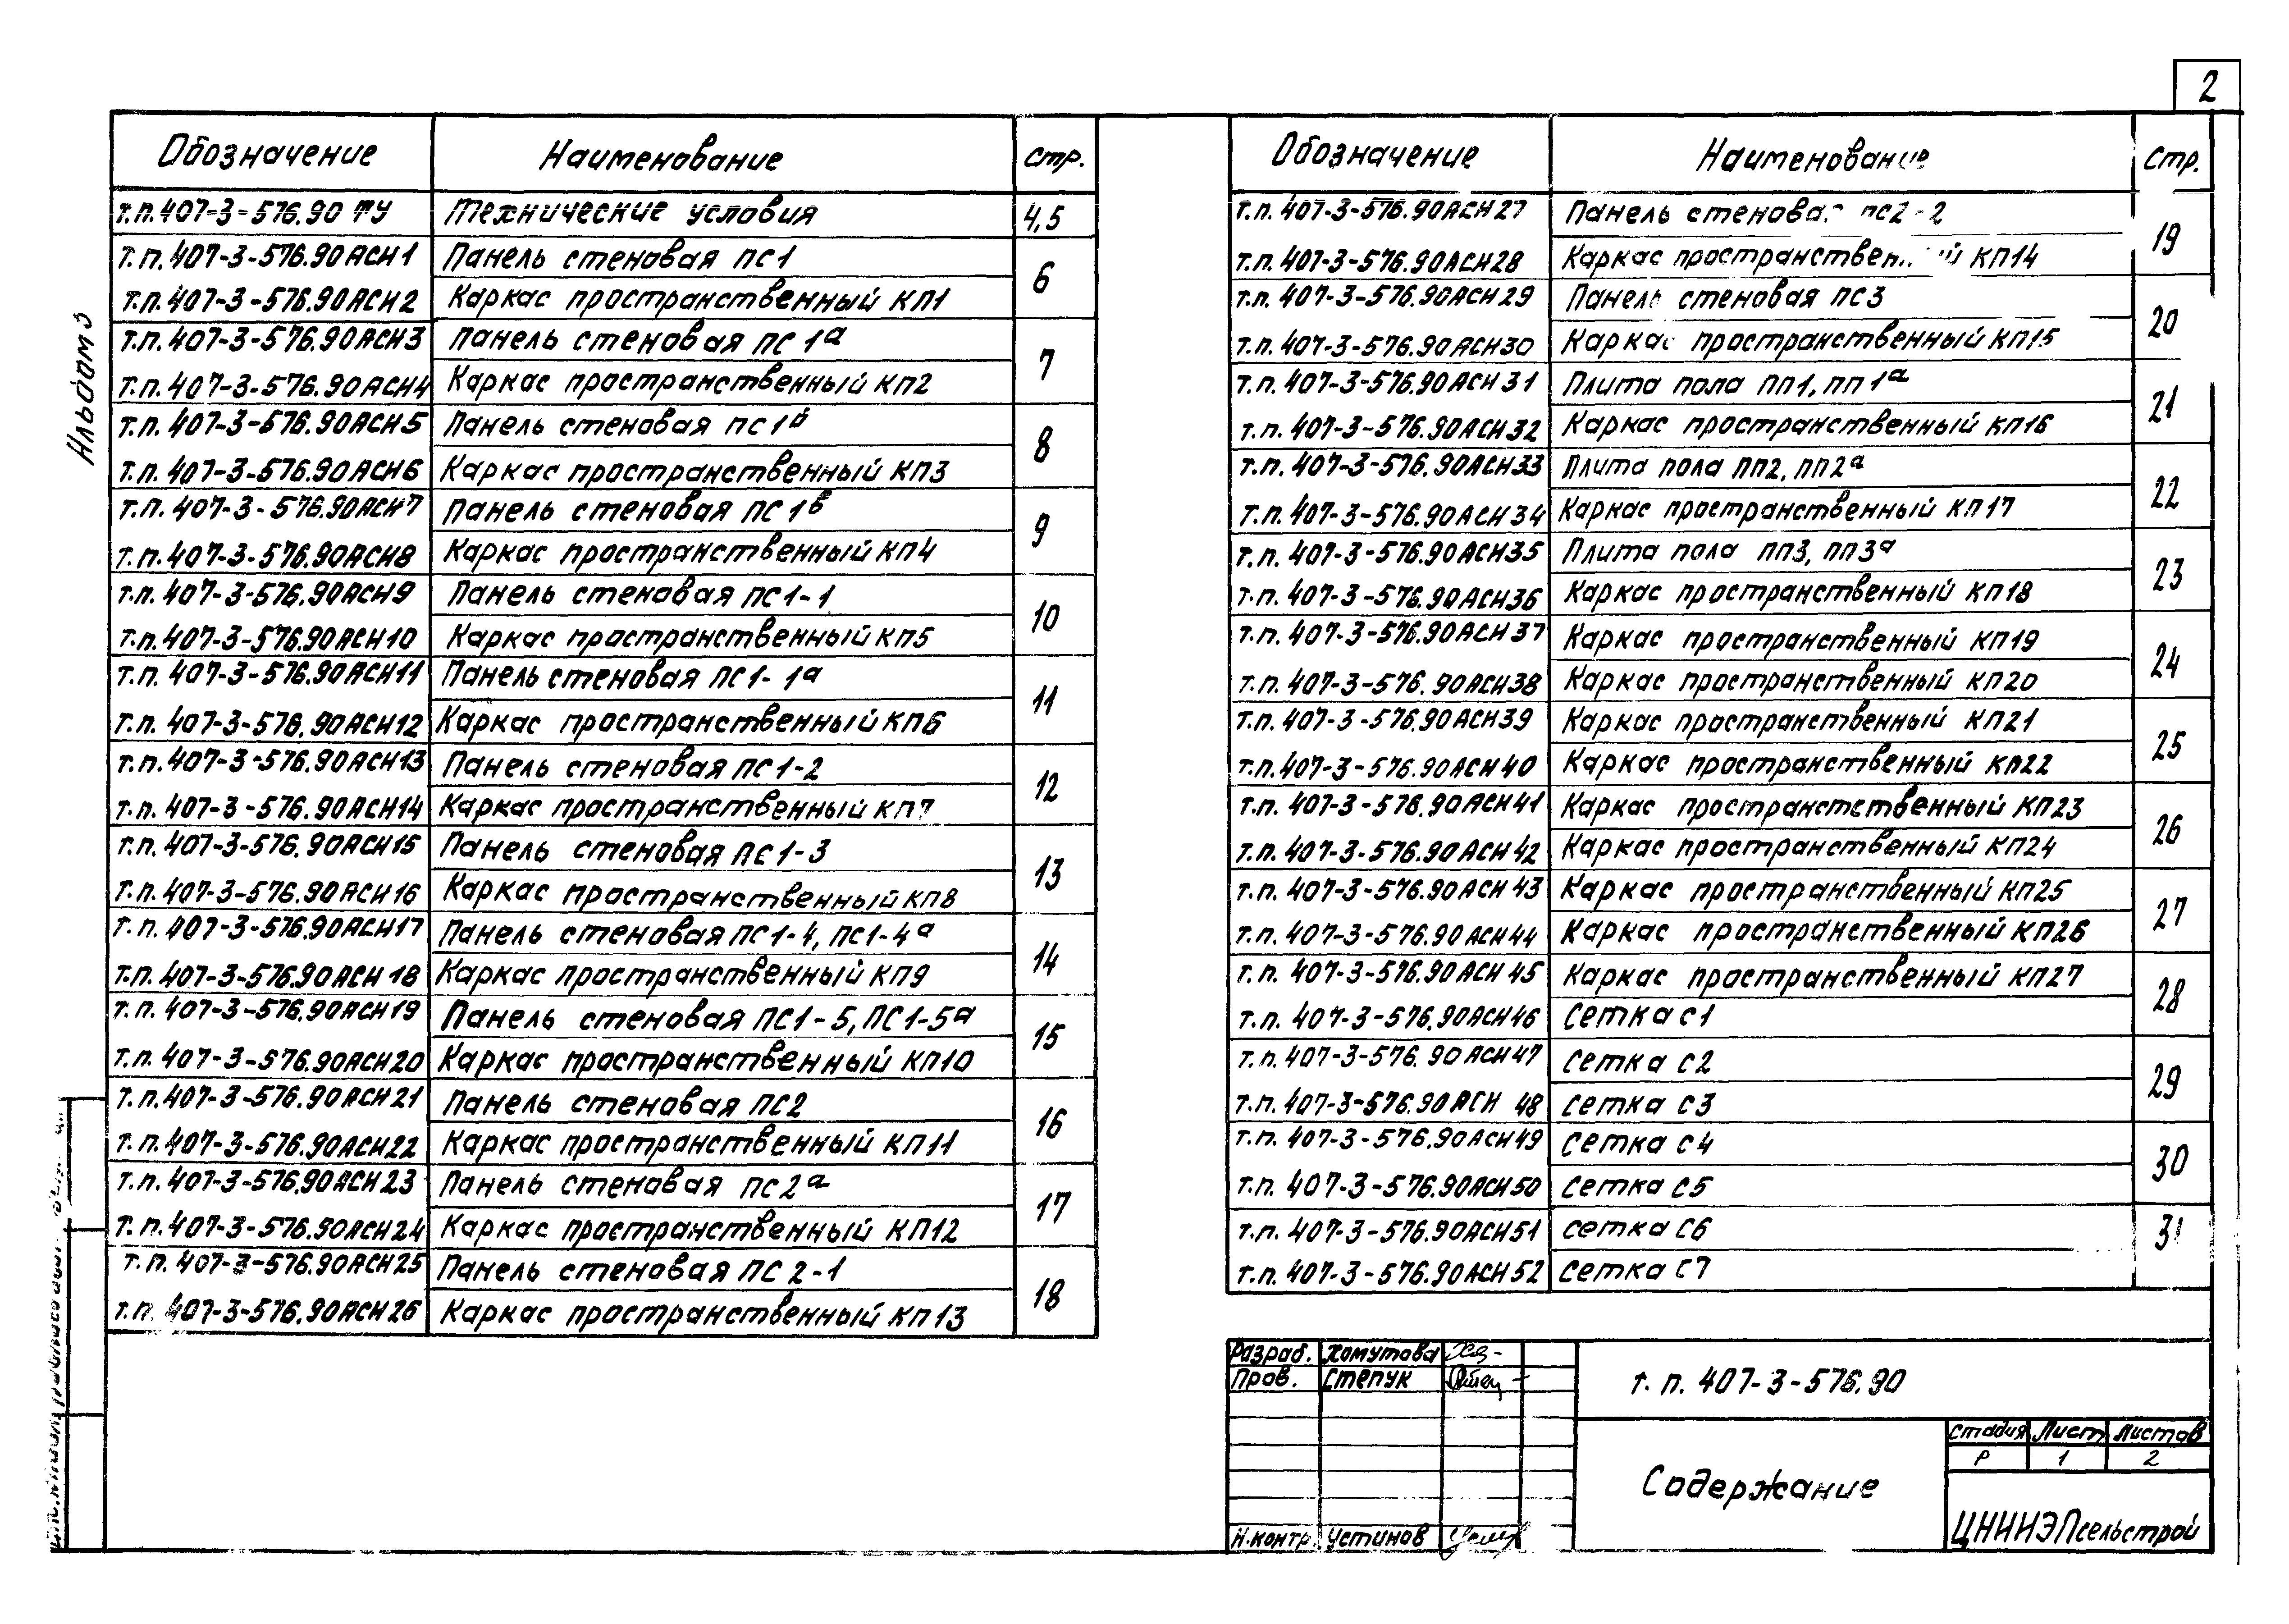 2
Альбом 3
Обозначение Наименование Стр.
Т.п. 407-3-576.90 ТУ Технические условия 4,5
Т.п. 407-3-576.90 АСИ 1 Панель стеновая ПС1 6
Т.п. 407-3-576.90 АСИ 2 Каркас пространственный КП1
Т.п. 407-3-576.90 АСИ 3 Панель стеновая ПС 1а 7
Т.п. 407-3-576.90 АСИ 4 Каркас пространственный КП2
Т.п. 407-3-576.90 АСИ 5 Панель стеновая ПС 1б 8
Т.п. 407-3-576.90 АСИ 6 Каркас пространственный КП3
Т.п. 407-3-576.90 АСИ 7 Панель стеновая ПС 1в 9
Т.п. 407-3-576.90 АСИ 8 Каркас пространственный КП4
Т.п. 407-3-576.90 АСИ 9 Панель стеновая ПС1-1 10
Т.п. 407-3-576.90 АСИ 10 Каркас пространственный КП5
Т.п. 407-3-576.90 АСИ 11 Панель стеновая ПС1-1а 11
Т.п. 407-3-576.90 АСИ 12 Каркас пространственный КП6
Т.п. 407-3-576.90 АСИ 13 Панель стеновая ПС1-2 12
Т.п. 407-3-576.90 АСИ 14 Каркас пространственный КП7
Т.п. 407-3-576.90 АСИ 15 Панель стеновая ПС1-3 13
Т.п. 407-3-576.90 АСИ 16 Каркас пространственный КП8
Т.п. 407-3-576.90 АСИ 17 Панель стеновая ПС1-4, ПС1-4а 14
Т.п. 407-3-576.90 АСИ 18 Каркас пространственный КП9
Т.п. 407-3-576.90 АСИ 19 Панель стеновая ПС1-5, ПС1-5а 15
Т.п. 407-3-576.90 АСИ 20 Каркас пространственный КП10
Т.п. 407-3-576.90 АСИ 21 Панель стеновая ПС2 16
Т.п. 407-3-576.90 АСИ 22 Каркас пространственный КП11
Т.п. 407-3-576.90 АСИ 23 Панель стеновая ПС2а 17
Т.п. 407-3-576.90 АСИ 24 Каркас пространственный КП12
Т.п. 407-3-576.90 АСИ 25 Панель стеновая ПС 2-1 18
Т.п. 407-3-576.90 АСИ 26 Каркас пространственный КП13
Обозначение Наименование Стр.
Т.п. 407-3-576.90 АСИ 27 Панель стеновая ПС2-2 19
Т.п. 407-3-576.90 АСИ 28 Каркас пространственный КП14
Т.п. 407-3-576.90 АСИ 29 Панель стеновая ПС3 20
Т.п. 407-3-576.90 АСИ 30 Каркас пространственный КП15
Т.п. 407-3-576.90 АСИ 31 Плита пола ПП1, ПП1а 21
Т.п. 407-3-576.90 АСИ 32 Каркас пространственный КП16
Т.п. 407-3-576.90 АСИ 33 Плита пола ПП2, ПП2а 22
Т.п. 407-3-576.90 АСИ 34 Каркас пространственный КП17
Т.п. 407-3-576.90 АСИ 35 Плита пола ПП3, ПП3а 23
Т.п. 407-3-576.90 АСИ 36 Каркас пространственный КП18
Т.п. 407-3-576.90 АСИ 37 Каркас пространственный КП19 24
Т.п. 407-3-576.90 АСИ 38 Каркас пространственный КП20
Т.п. 407-3-576.90 АСИ 39 Каркас пространственный КП21 25
Т.п. 407-3-576.90 АСИ 40 Каркас пространственный КП22
Т.п. 407-3-576.90 АСИ 41 Каркас пространстственный КП23 26
Т.п. 407-3-576.90 АСИ 42 Каркас пространственный КП24
Т.п. 407-3-576.90 АСИ 43 Каркас пространственный КП25 27
Т.п. 407-3-576.90 АСИ 44 Каркас пространственный КП26
Т.п. 407-3-576.90 АСИ 45 Каркас пространственный КП27 28
Т.п. 407-3-576.90 АСИ 46 Сетка С1
Т.п. 407-3-576.90 АСИ 47 Сетка С2 29
Т.п. 407-3-576.90 АСИ 48 Сетка С3
Т.п. 407-3-576.90 АСИ 49 Сетка С4 30
Т.п. 407-3-576.90 АСИ 50 Сетка С5
Т.п. 407-3-576.90 АСИ 51 Сетка С6 31
Т.п. 407-3-576.90 АСИ 52 Сетка С7
Разраб. Хомутова
Пров. Степук
Н.контр. Устинов
Т. п. 407-3-576.90
Содержание
Стадия Лист Листов
Р 1 2
ЦНИИЭПсельстрой